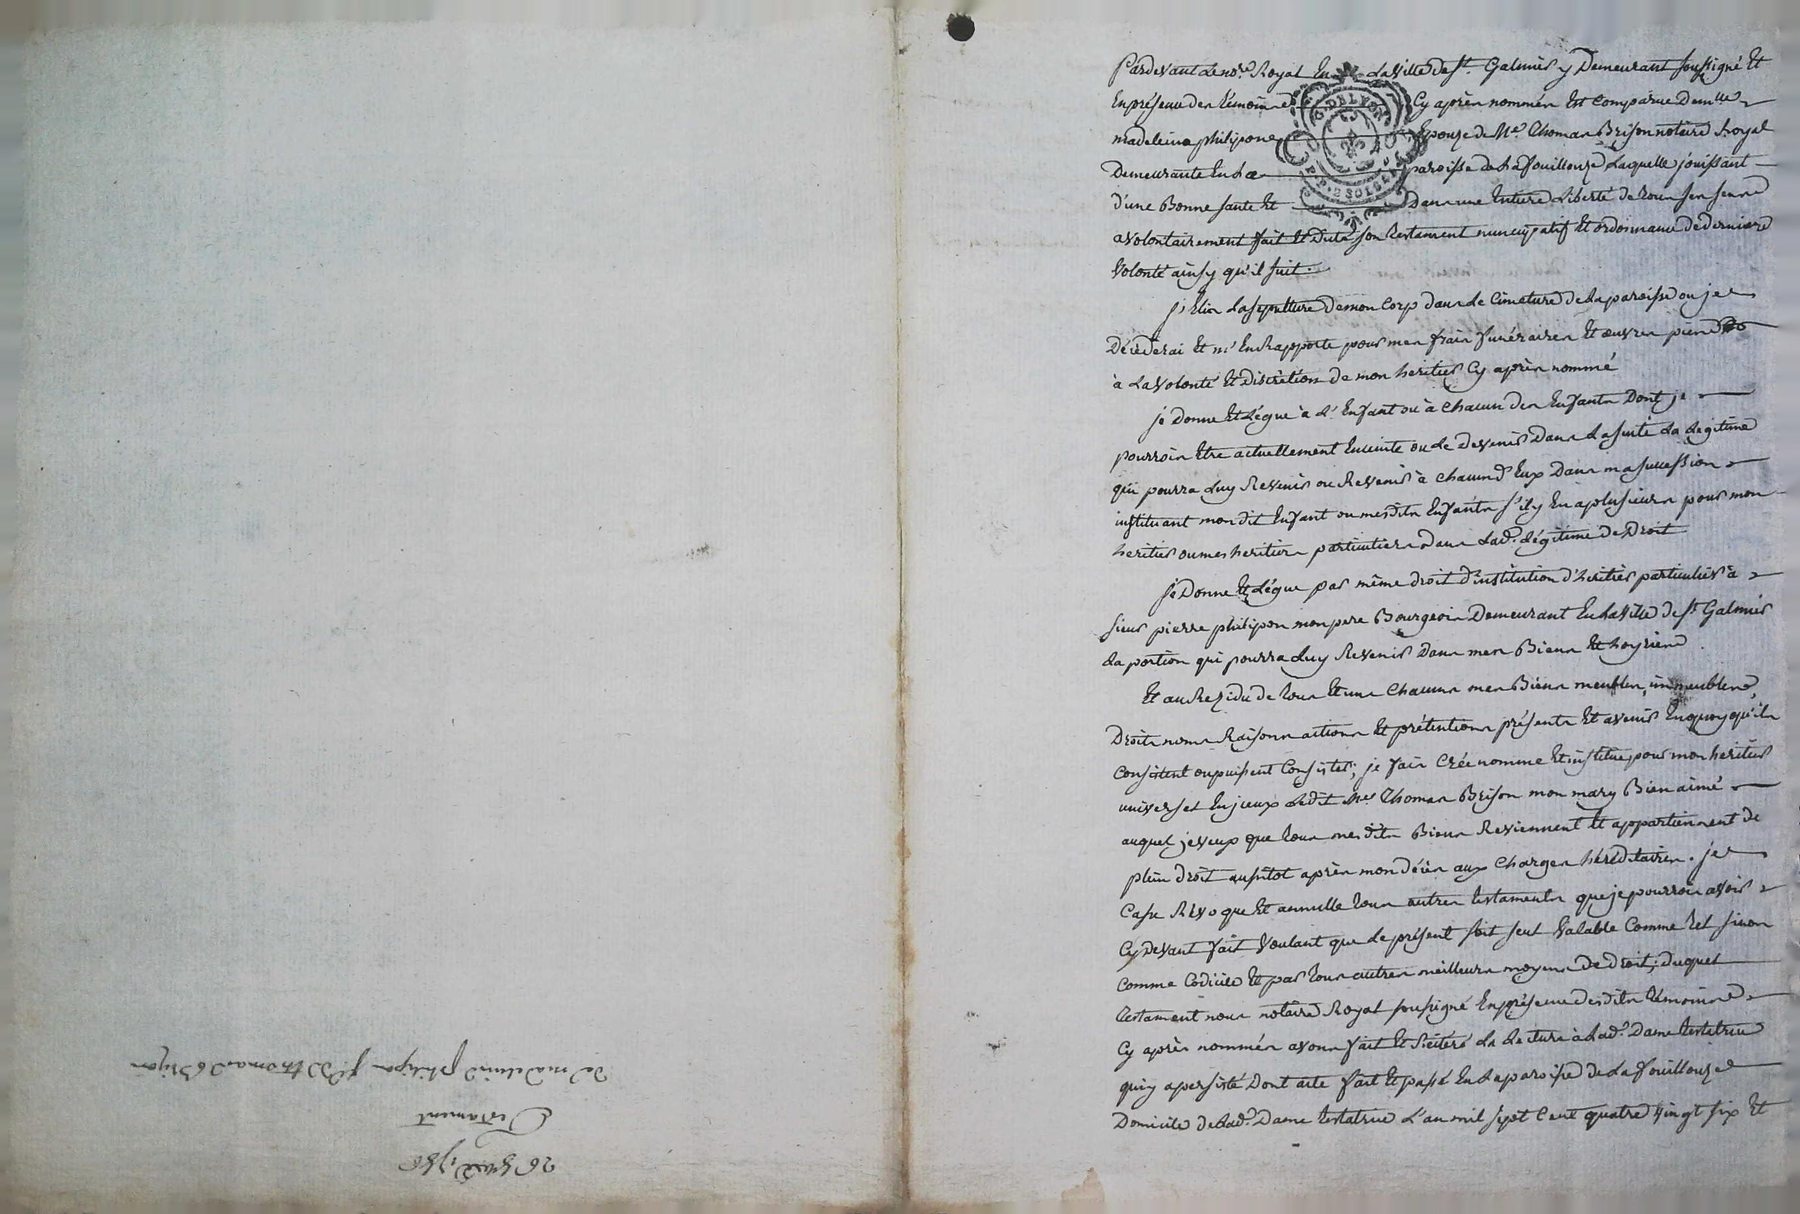 Pardevant le no.re Royal En la Ville de St. Galmier y Demeurant soussigné Et
En présence des témoins Cy après nommés Est comparue Demlle
madeleine philipon Epouze de Me Thomas Brison notaire Royal
Demeurante En La paroisse de la fouillouze Laquelle jouissant
d'une Bonne santé Et Dans une Entiere Liberté de tous ses sens
a volontairement fait Et dicté son testament nuncupatif Et ordonnance de derniere
Volonté ainsy qu'il suit.
j'Elis La sepulture de mon Corp dans le Cimetiere de la paroisse ou je
Décéderai Et m'En Rapporte pour mes frais funéraires Et œuvres pies
à La volonté Et discrétion de mon heritier Cy après nommé
je Donne Et Lègue à L'Enfant ou à chacun des Enfants Dont je
pourrois Etre actuellement Enceinte ou Le Devenir Dans La suite La Légitime
qui pourra Luy Revenir ou Revenir à chacun d'Eux Dans ma succession
instituant mon dit Enfant ou mesdits Enfants s'il y En a plusieurs pour mon
heritier ou mes heritiers particuliers dans Lad. Légitime de Droit
je Donne Et Lègue par même droit d'institution d'héritier particulier à
sieur pierre philipon mon pere Bourgeois Demeurant En La Ville de St Galmier
La portion qui pourra Luy Revenir Dans mes Biens Et hoyrie
Et au Rezidu de tous Et uns Chacuns mes Biens meubles, immeubles,
Droits noms Raisons actions Et prétentions présents Et avenir En quoy qu'ils
Consistent ou puissent Consister; je fais Crée nomme Et institue pour mon heritier
universel En jceux Ledit Me Thomas Brison mon mary Bien aimé
auquel je veux que tous mesdits Biens Reviennent Et appartiennent de
plein droit aussitot après mon décès aux Charges héréditaires. je
Casse Révoque Et annulle tous autres testaments que je pourrois avoir
Cy devant fait Voulant que Le présent soit seul Valable Comme tel sinon
Comme Codicile Et par tous autres meilleurs moyens de droit; duquel
testament nous notaire Royal soussigné En présence desdits témoins
Cy après nommés avons fait Et Réitéré La Lecture à Lad. Dame testatrice
qui y a persisté Dont acte fait Et passé En La paroisse de La fouillouze
Domicile de Lad. Dame testatrice L'an mil sept Cent quatre Vingt six Et
G. DE LYON
26 1786
Testament
de madeleine philipon fe de thomas Brison